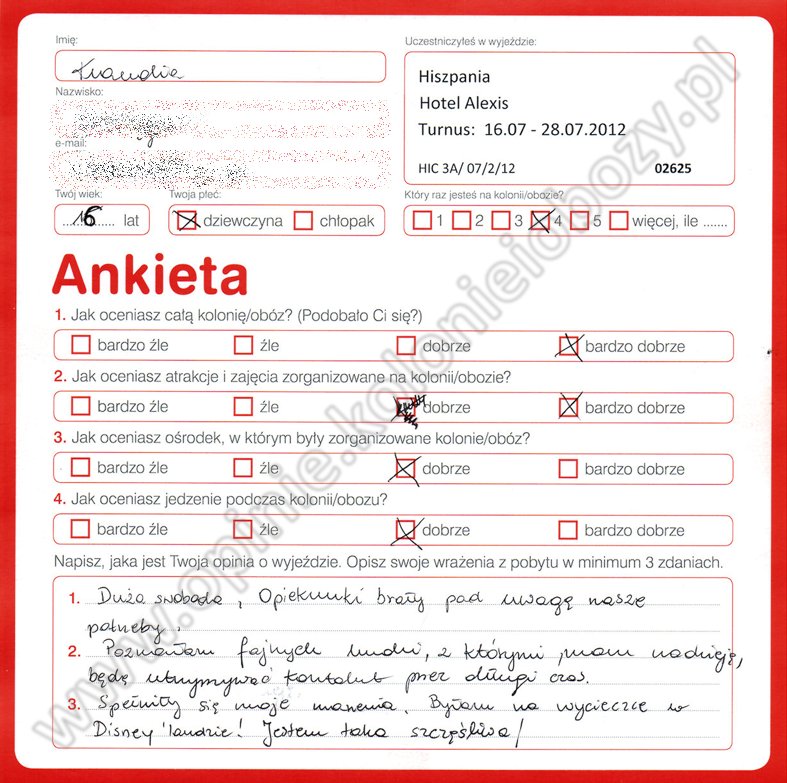 Imię:
Klaudia
Uczestniczyłeś w wyjeździe:
Hiszpania
Hotel Alexis
Turnus: 16.07 - 28.07.2012
HIC 3A/ 07/2/12 02625
Nazwisko:
e-mail:
Twój wiek:
16 lat
Twoja płeć:
dziewczyna chłopak
Który raz jesteś na kolonii/obozie?
1 2 3 4 5 więcej, ile .......
Ankieta
1. Jak oceniasz całą kolonię/obóz? (Podobało Ci się?)
bardzo źle źle dobrze bardzo dobrze
2. Jak oceniasz atrakcje i zajęcia zorganizowane na kolonii/obozie?
bardzo źle źle dobrze bardzo dobrze
3. Jak oceniasz ośrodek, w którym były zorganizowane kolonie/obóz?
bardzo źle źle dobrze bardzo dobrze
4. Jak oceniasz jedzenie podczas kolonii/obozu?
bardzo źle źle dobrze bardzo dobrze
Napisz, jaka jest Twoja opinia o wyjeździe. Opisz swoje wrażenia z pobytu w minimum 3 zdaniach.
1. Duża swoboda, Opiekunki brały pod uwagę nasze
potrzeby.
2. Poznałam fajnych ludzi, z którymi, mam nadzieję,
będę utrzymywać kontakt przez długi czas.
3. Spełniły się moje marzenia. Byłam na wycieczce w
Disney'landzie! Jestem taka szczęśliwa!
www.opinie.kolonieiobozy.pl